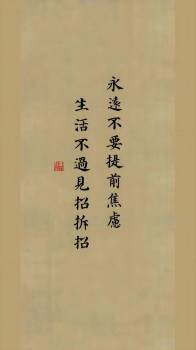 永遠不要提前焦慮
生活不過見招拆招